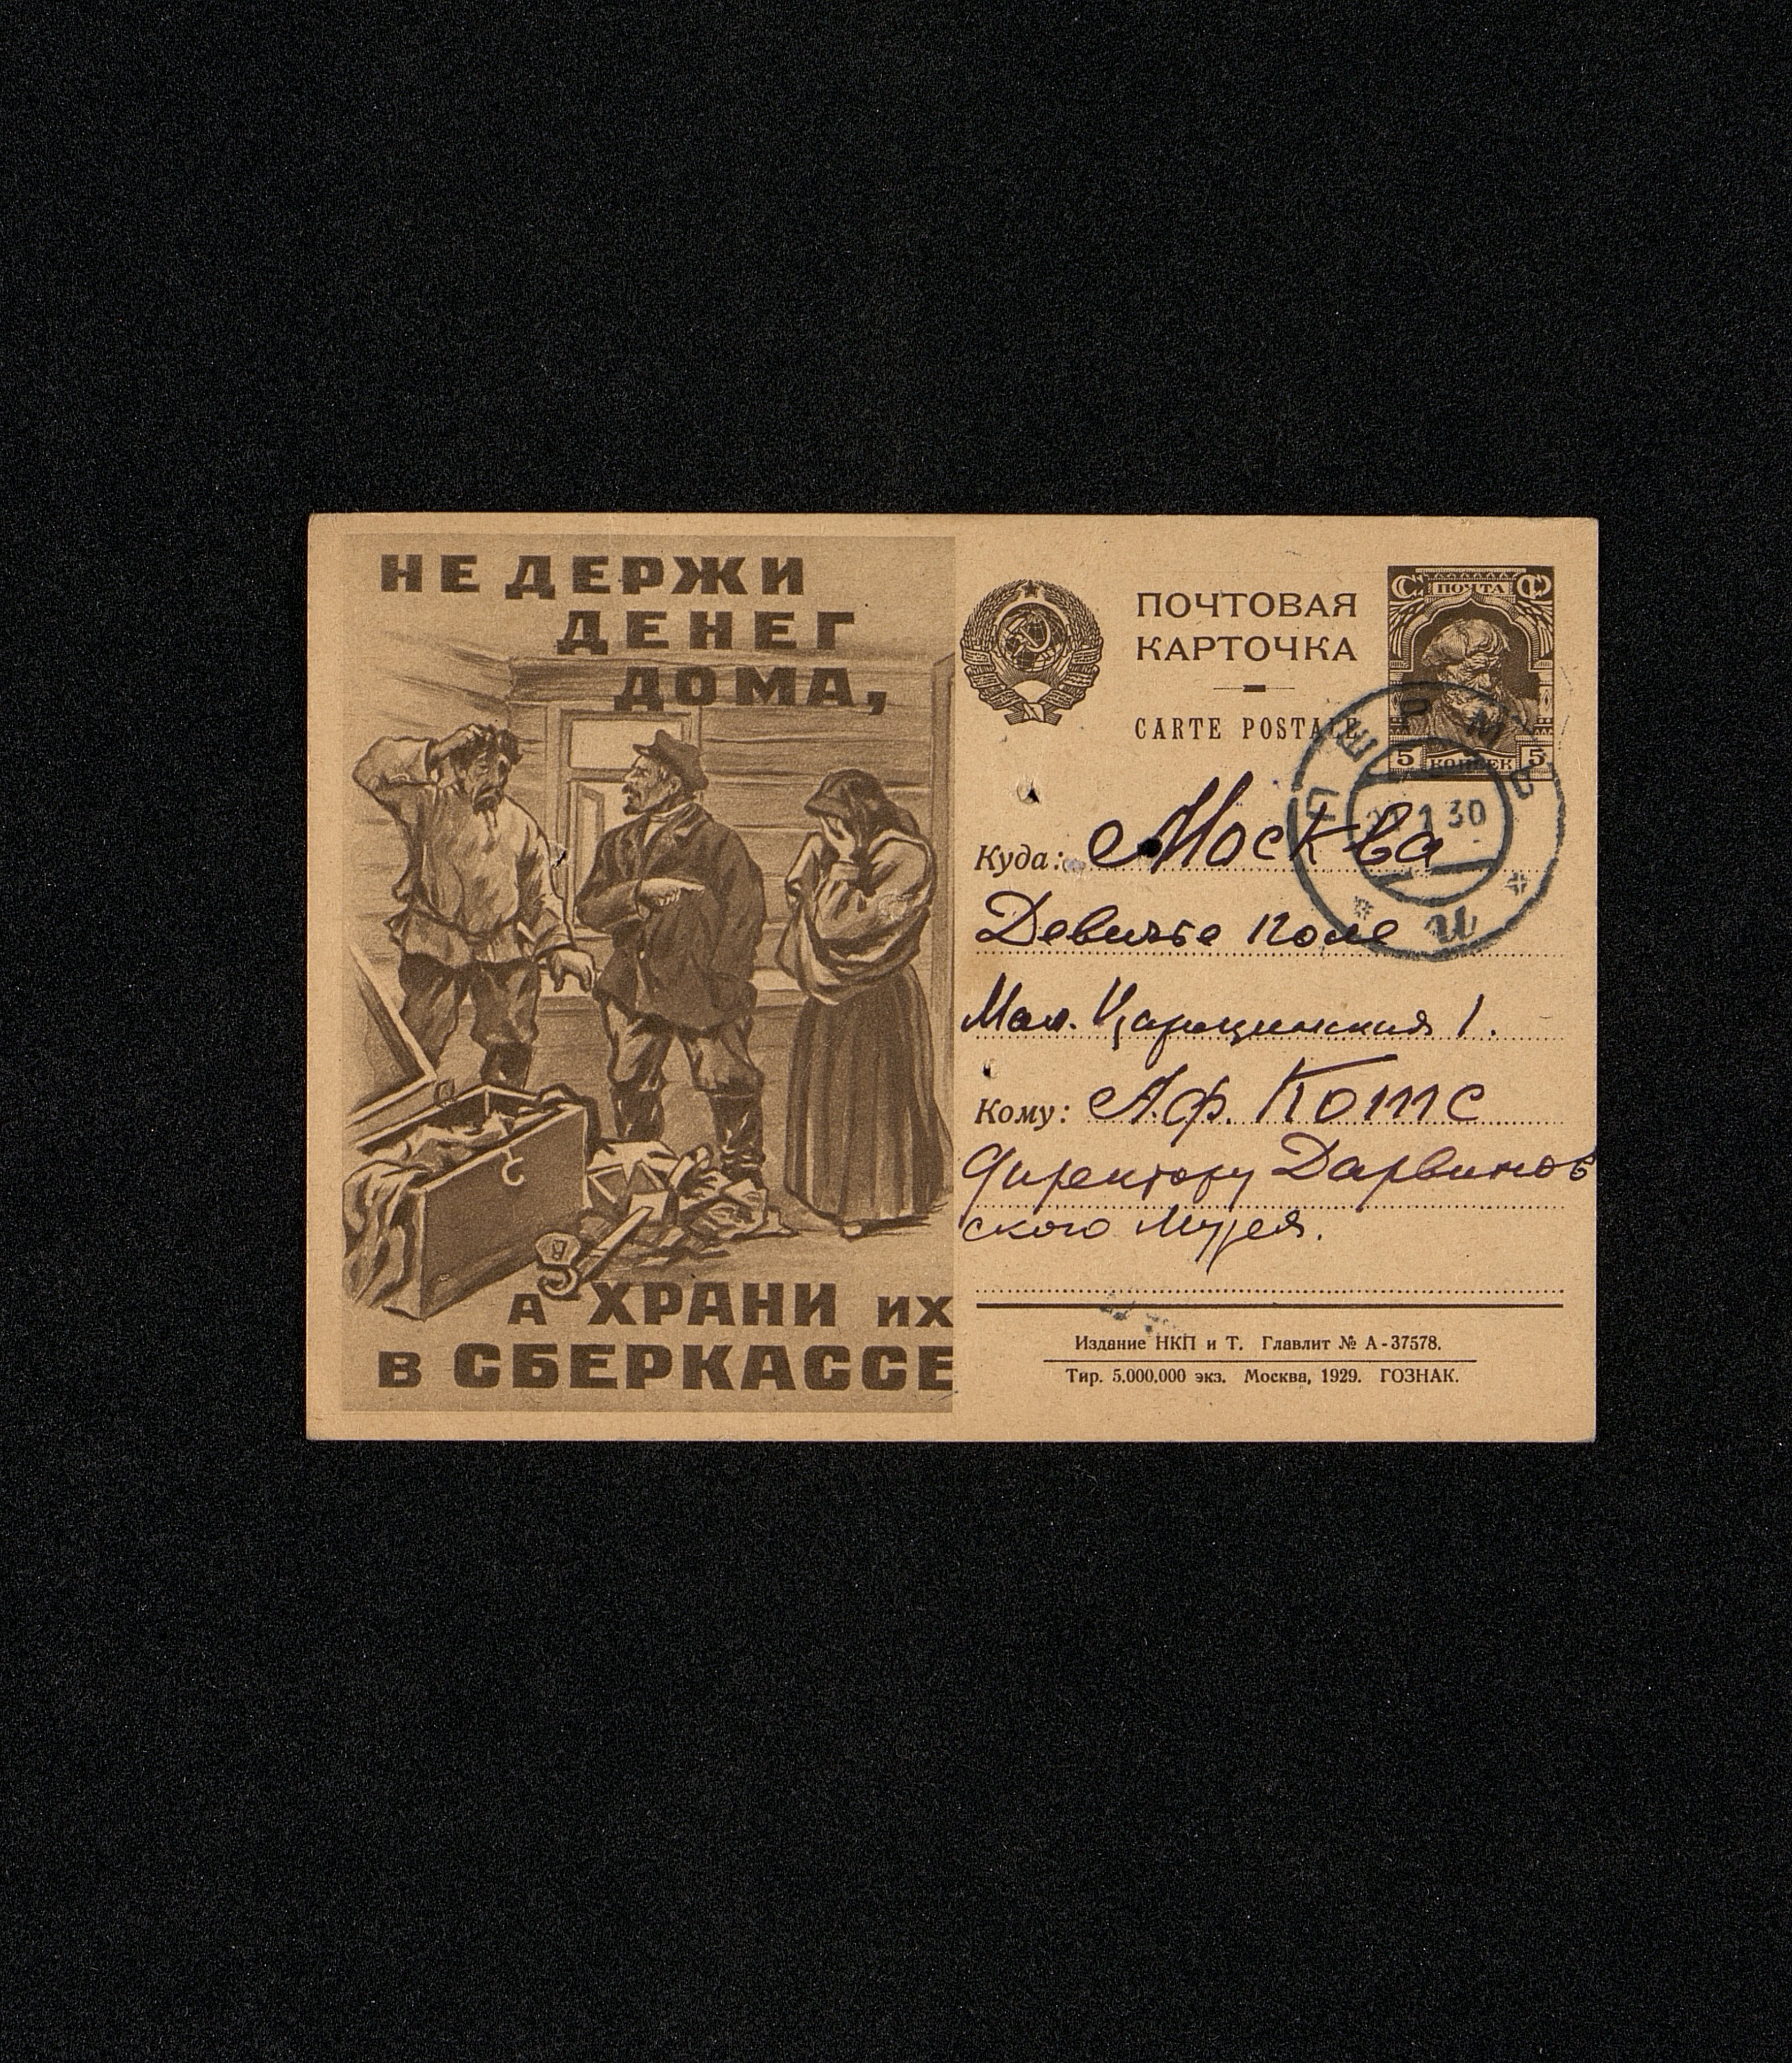 НЕ ДЕРЖИ
ДЕНЕГ
ДОМА,
А ХРАНИ ИХ
В СБЕРКАССЕ
ПОЧТОВАЯ
КАРТОЧКА
CARTE POSTALE
С ПОЧТА Ф
5 КОПЕЕК 5
ПЕРМЬ
1 30
и
Куда: Москва
Девичье Поле
Мал. Царицинская 1.
Кому: А.Ф. Котс
Директору Дарвинов
ского Музея.
Издание НКП и Т. Главлит № А-37578.
Тир. 5.000.000 экз. Москва, 1929. ГОЗНАК.